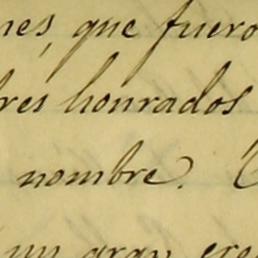 nes, que fuero
res honrados
nombre.
un gran cre